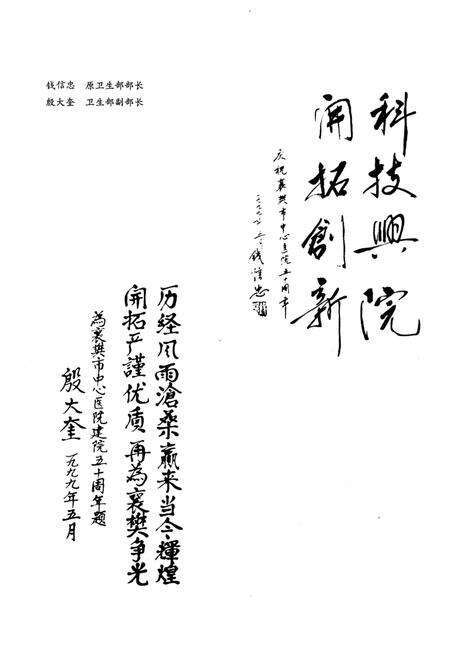 钱信忠　原卫生部部长
殷大奎　卫生部副部长
科技興院
開拓創新
庆祝襄樊市中心医院五十周年
钱信忠
历经风雨滄桑赢来当今輝煌
開拓严謹优质再為襄樊争光
為襄樊市中心医院建院五十周年題
殷大奎 一九九九年五月